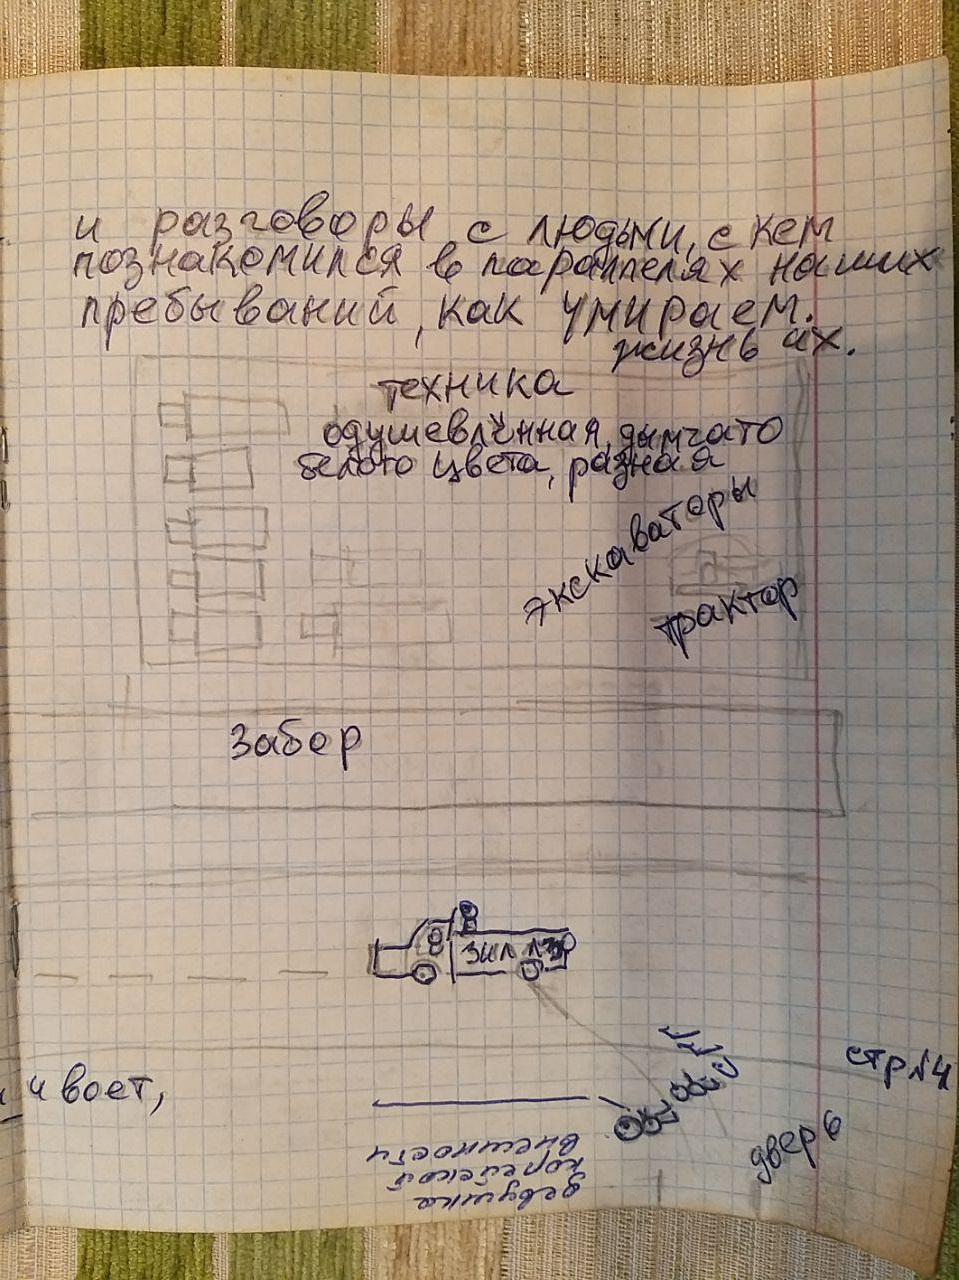 и разговоры с людьми, с кем
познакомился в параллелях наших
пребываний, как умираем.
жизнь их.
техника
одушевлённая, дымчато
белого цвета, разная
экскаваторы
трактор
забор
ЗИЛ
и воет,
стр №4
дверь
девушка
корейской
внешности